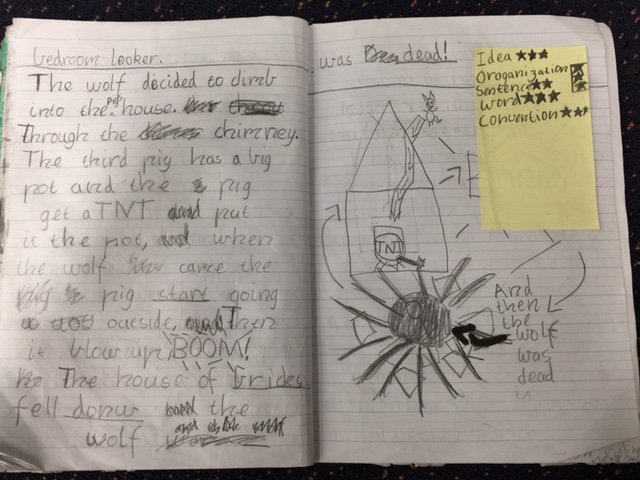 bedroom looker.
The wolf decided to climb
into the pigs house.
Through the chimney.
The third pig has a big
pot and the pig
get a TNT and put
it the pot, and when
the wolf came the
pig start going
outside, Then
it blow up, BOOM!
The house of bricks
fell donw the
wolf
was dead!
Idea ★★★
Oroganization ★
Sentence ★★
Word ★★★
Convention ★★★
TNT
And
then
the
wolf
was
dead